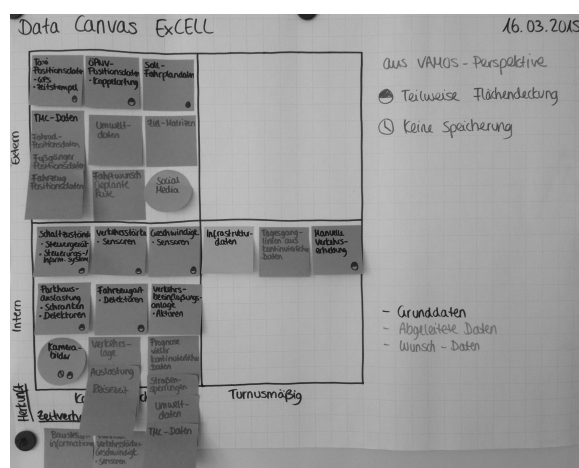 Data Canvas ExCELL
16.03.2015
aus VAMOS-Perspektive
Teilweise Flächendeckung
Keine Speicherung
Extern
Taxi
Positionsdaten
- GPS
- Zeitstempel
ÖPNV-
Positionsdaten
- Koppelortung
Soll-
Fahrplandaten
TMC-Daten
Umwelt-
daten
Fahrrad-
Positionsdaten
Fußgänger
Positionsdaten
Fahrzeug
Positionsdaten
Fahrtwunsch
Geplante
Route
Social
Media
Intern
Schaltzustände
- Steuergerät
- Steuerungs-/
Inform.system
Verkehrsstärke
- Sensoren
Geschwindigk.
- Sensoren
Infrastruktur-
daten
Tagesgang-
linien aus
kontinuierliche
Daten
Manuelle
Verkehrs-
erhebung
Parkhaus-
auslastung
- Schranken
- Detektoren
Fahrzeugart
- Detektoren
Verkehrs-
beeinflussungs-
anlage
- Aktoren
Kamera-
bilder
Verkehrs-
lage
Auslastung
Reisezeit
Prognose
kontinuierliche
Daten
Straßen-
sperrungen
Umwelt-
daten
TMC-Daten
- Grunddaten
- Abgeleitete Daten
- Wunsch-Daten
Herkunft
Turnusmäßig
Baustellen-
information
Verkehrsstärke
Geschwindigk.
- Sensoren